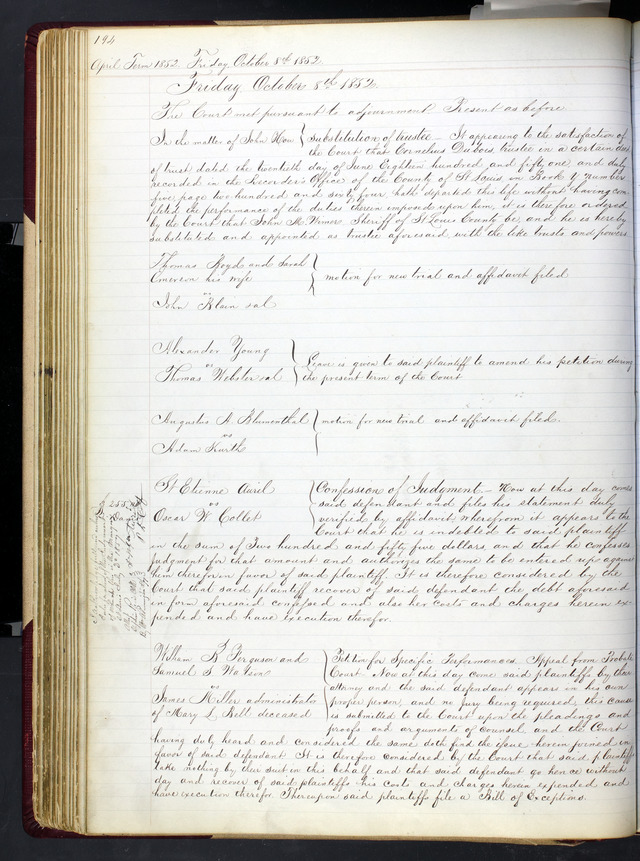 194
April Term 1852. Friday, October 8th 1852.
Friday October 8th 1852.
The Court met pursuant to adjournment Present as before
In the matter of John How Substitution of trustee — It appearing to the satisfaction of
the Court that Cornelius Davies, trustee in a certain deed
of trust dated the twentieth day of June Eighteen hundred and fifty one and duly
recorded in the Recorder's Office of the County of St Louis in Book Y number
five page two hundred and sixty four, hath departed this life without having com
pleted the performance of the duties therein imposed upon him, it is therefore ordered
by the Court that John M. Wimer Sheriff of St Louis County be, and he is hereby
substituted and appointed as trustee aforesaid with the like trusts and powers
Thomas Boyde and Sarah
his wife motion for new trial and affidavit filed
vs
John Blain et al
Alexander Young
vs Leave is given to said plaintiff to amend his petition during
Thomas Webster et al the present term of the Court
Augustus A Blumenthal motion for new trial and affidavit filed.
vs
Adam Kurth
St Etienne Auril Confession of Judgment — Now at this day comes
vs said defendant and files his statement duly
Oscar W Collet verified by affidavit, wherefrom it appears to the
Court that he is indebted to said plaintiff
in the sum of Two hundred and fifty five dollars, and that he confesses
judgment for that amount and authorizes the same to be entered up against
him therefor in favor of said plaintiff. It is therefore considered by the
Court that said plaintiff recover of said defendant the debt aforesaid
in form aforesaid confessed and also her costs and charges herein ex-
pended and have execution therefor.
William B Ferguson and Petition for Specific Performance. Appeal from Probate
Samuel S Watson Court. Now at this day come said plaintiffs by their
vs attorney and the said defendant appears in his own
James Miller administrator proper person, and no jury being required, this cause
of Mary L Bell deceased is submitted to the Court upon the pleadings and
proofs and arguments of counsel and the Court
having duly heard and considered the same doth find the issue herein joined in
favor of said defendant It is therefore considered by the Court that said plaintiffs
take nothing by their suit in this behalf and that said defendant go hence without
day and recover of said plaintiffs his costs and charges herein expended and
have execution therefor. Thereupon said plaintiffs file a Bill of Exceptions.